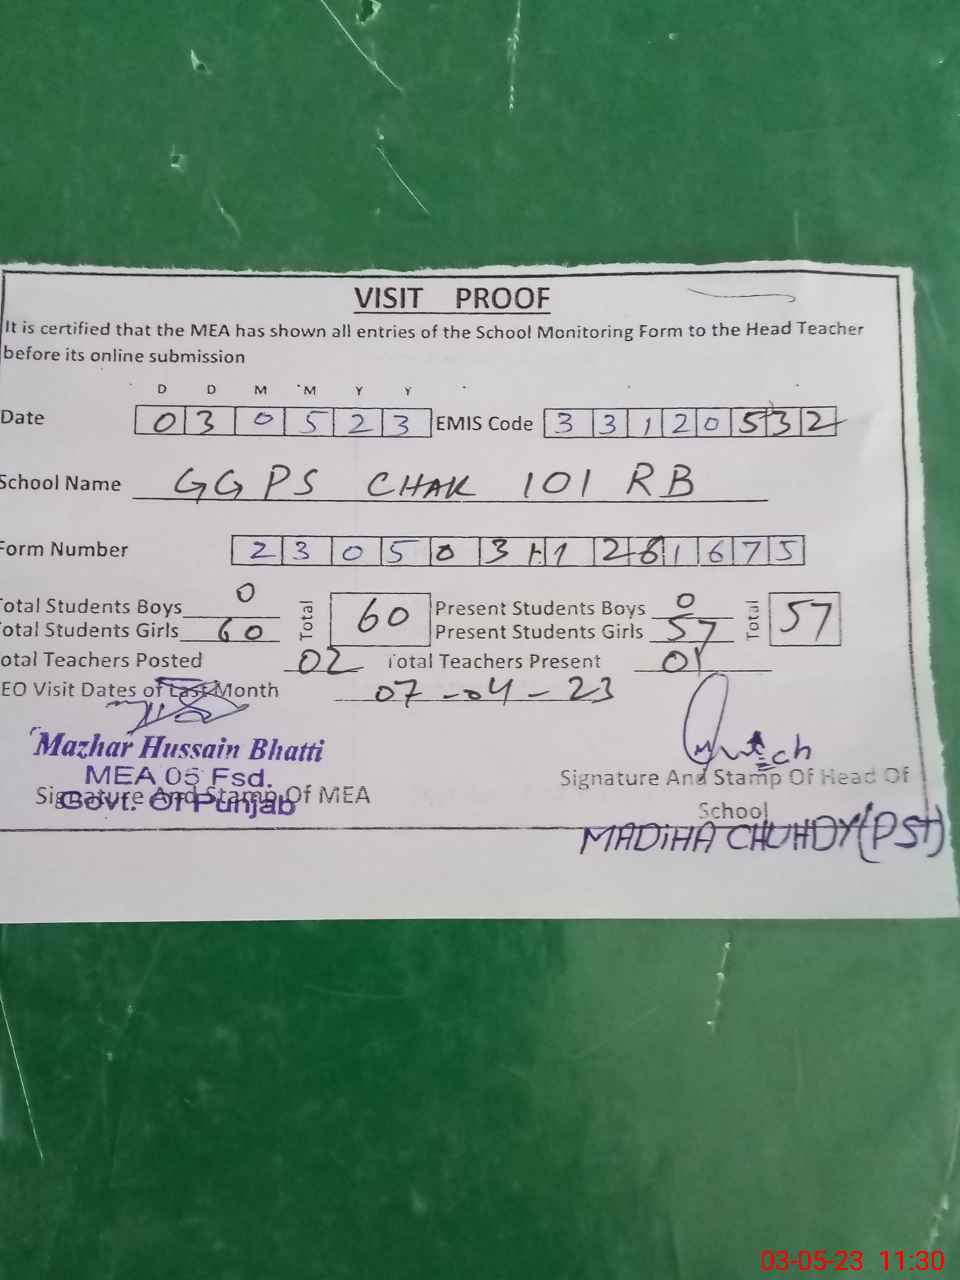 VISIT PROOF
It is certified that the MEA has shown all entries of the School Monitoring Form to the Head Teacher
before its online submission
D D M M Y Y
Date 03 05 23 EMIS Code 33120532
School Name GGPS CHAK 101 RB
Form Number 2305031 1675
Total Students Boys 0 Total 60 Present Students Boys 0 Total 57
Total Students Girls 60 Present Students Girls 57
Total Teachers Posted 02 Total Teachers Present 01
EO Visit Dates of Last Month 07-04-23
Mazhar Hussain Bhatti
MEA 05 Fsd.
Govt. Of Punjab
Signature And Stamp Of MEA
Signature And Stamp Of Head Of
School
MADIHA CHUHDY (PST)
03-05-23 11:30